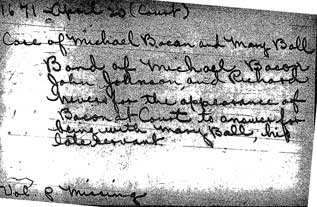 1671 April 20 (Court)
Case of Michael Bacon and Mary Ball
Bond of Michael Bacon
John Johnson and Richard
for the appearance of
Bacon at Court to answer for
being with Mary Ball, his
late servant
Vol. p Missing